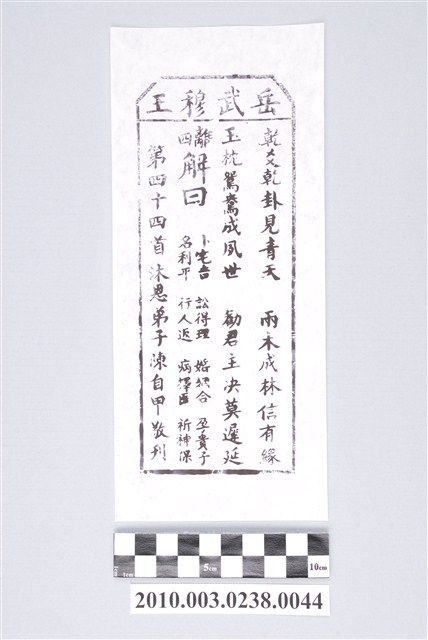 岳武穆王
乾爻乾卦見青天 兩木成林信有緣
玉枕鴛鴦成夙世 勸君主決莫遲延
離四
解曰
卜宅吉 訟得理 婚合 孕貴子
名利平 行人返 病擇醫 祈神保
第四十四首 沐恩弟子陳自甲敬刊
1cm 5cm 10cm
2010.003.0238.0044